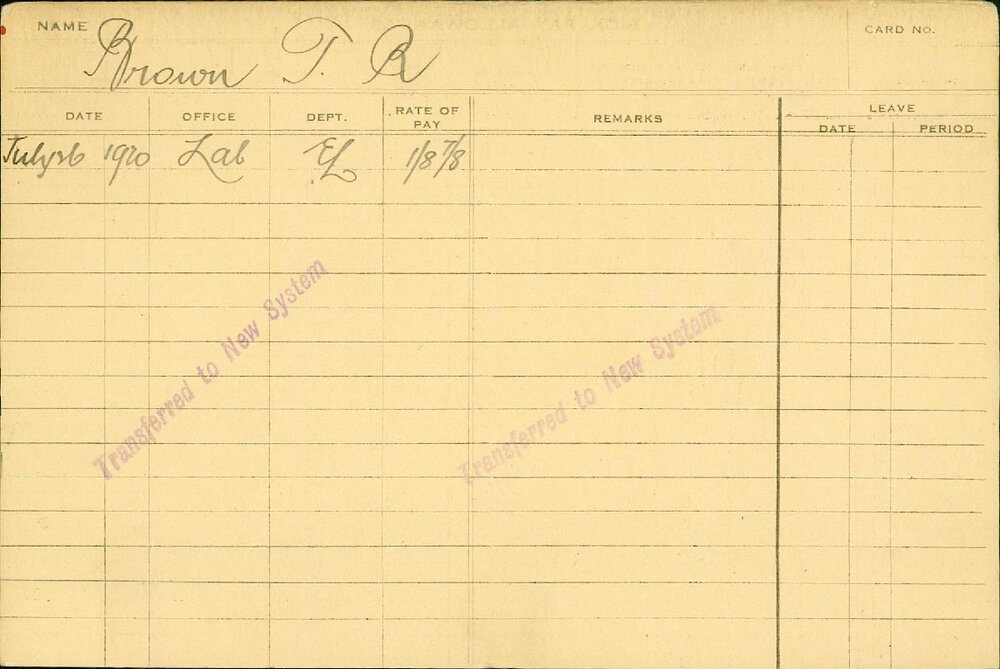 NAME Brown T. R CARD NO.
DATE OFFICE DEPT. RATE OF PAY REMARKS LEAVE
DATE PERIOD
July 26 1920 Lab EL 1/8 7/8
Transferred to New System
Transferred to New System